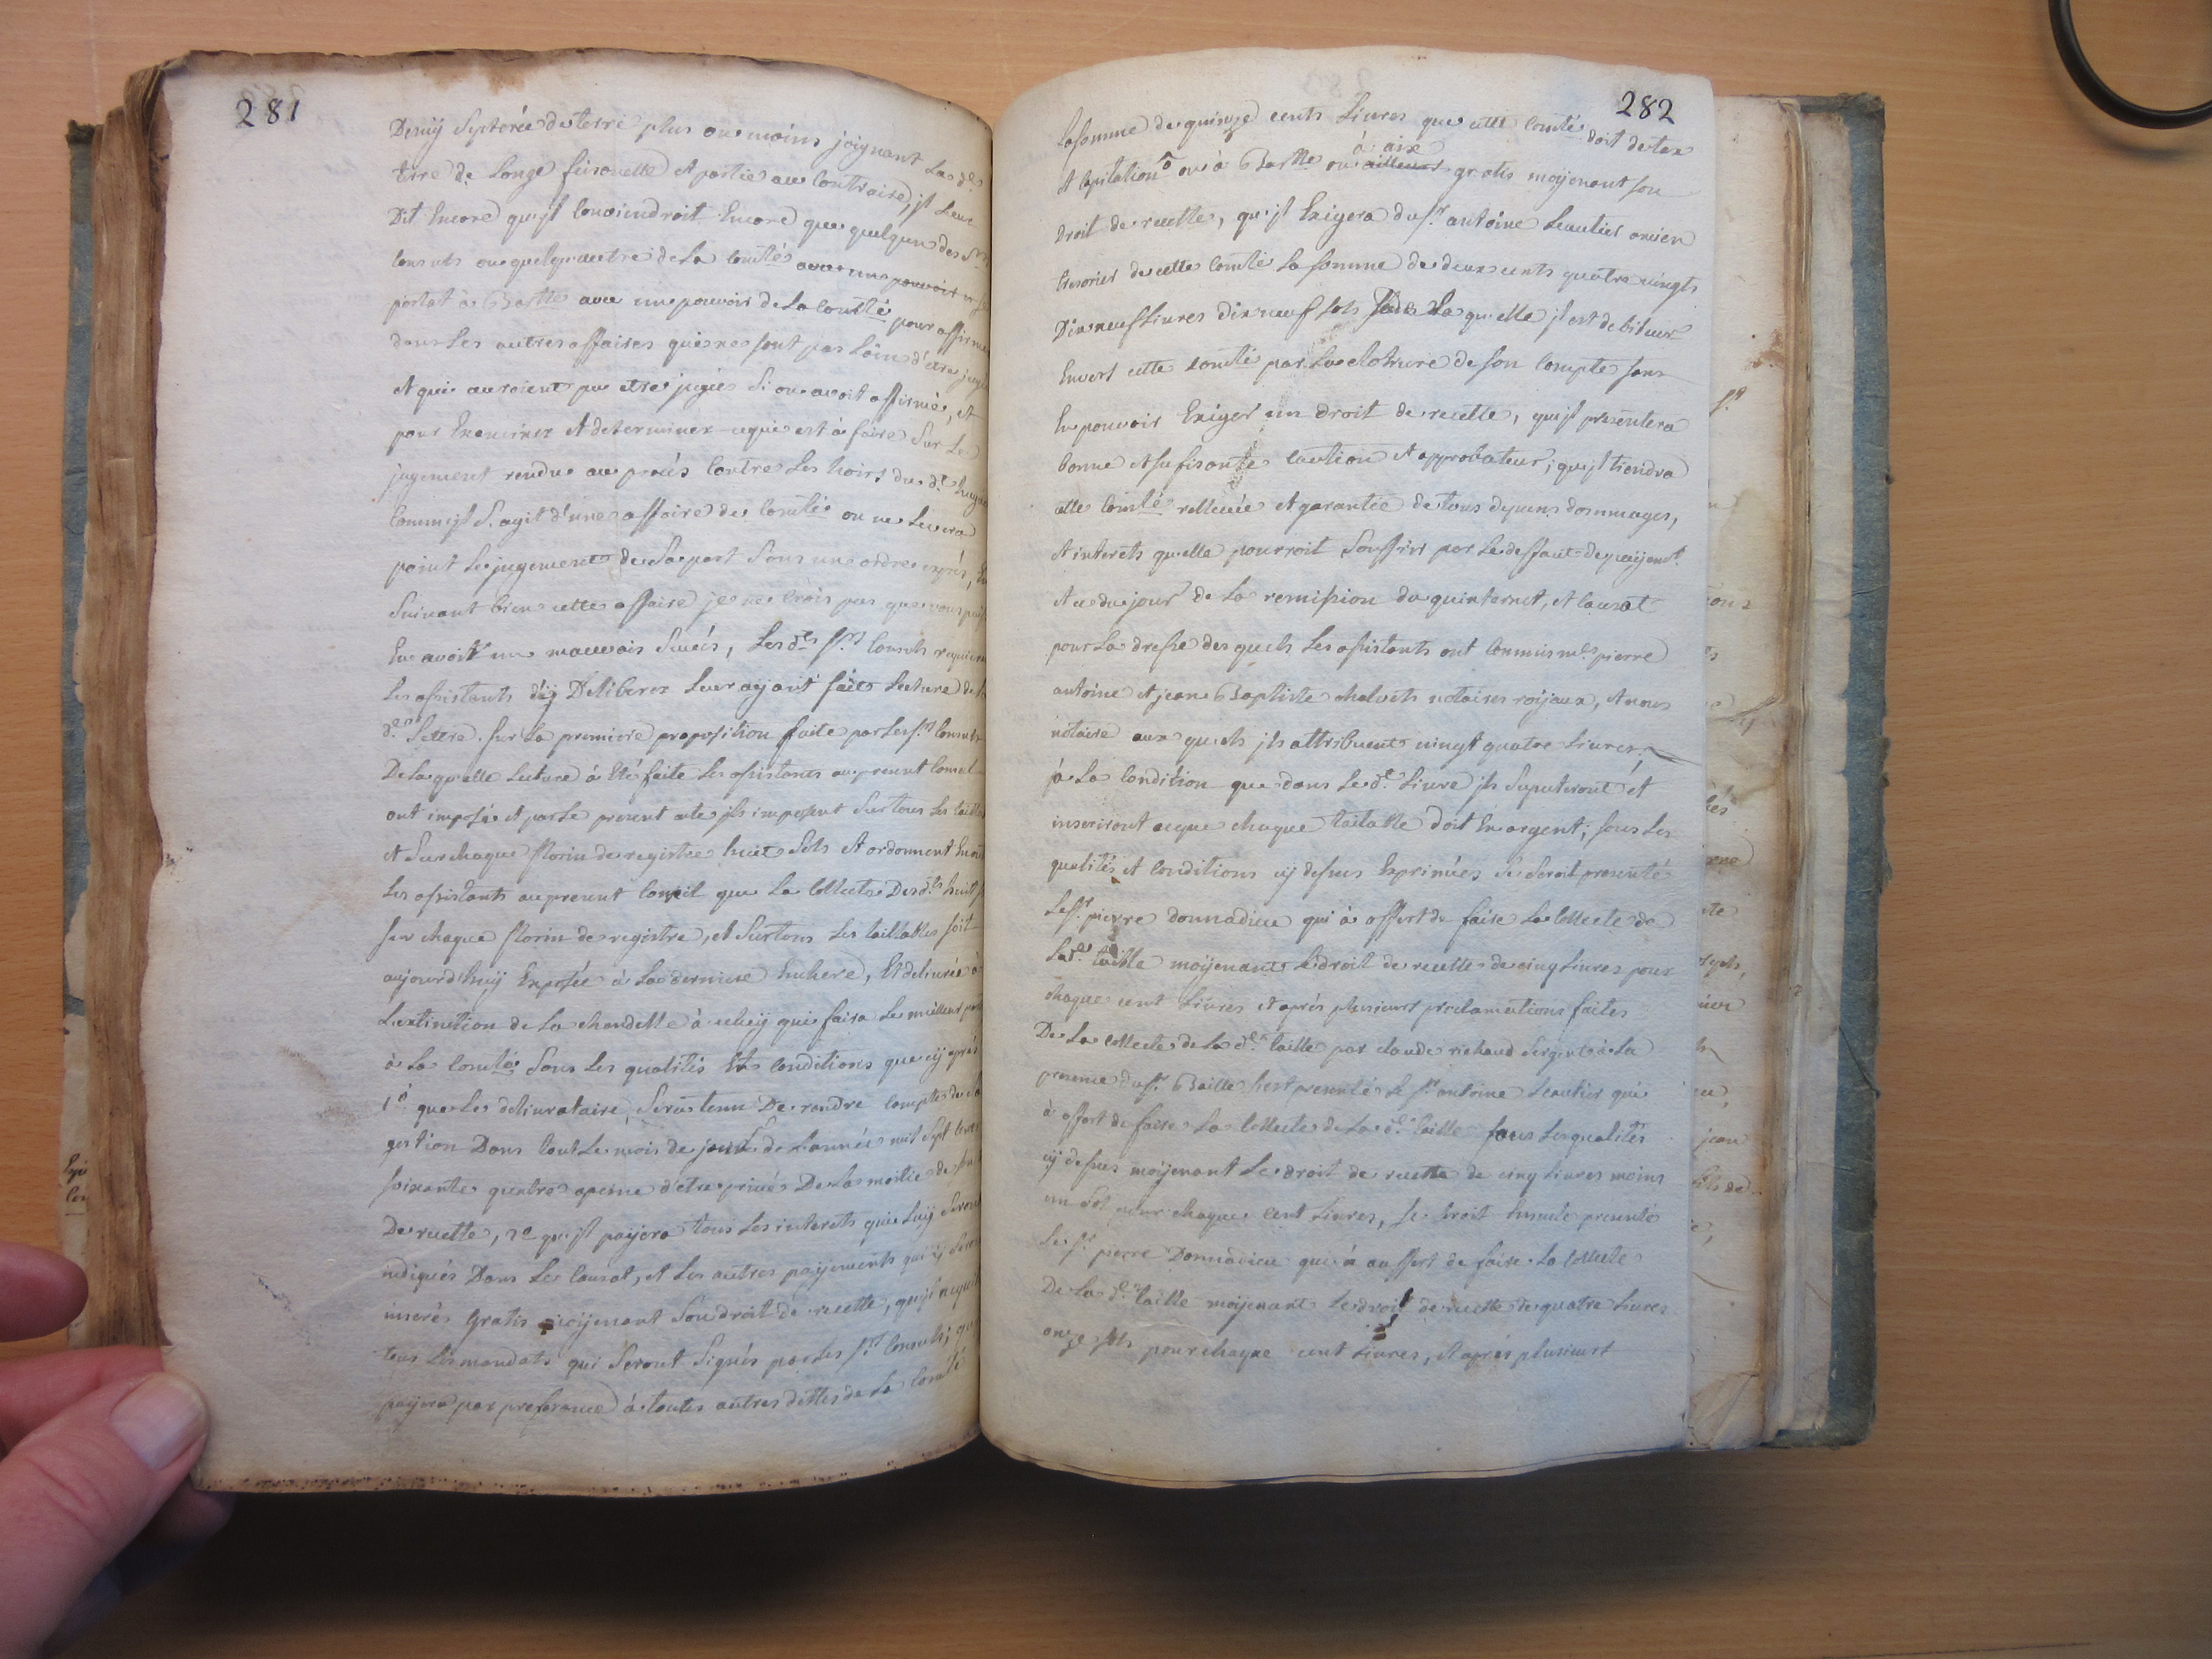 281
Demÿ Septerée de terre plus ou moins joignant La d.e
terre de Longe feissouelle et partie au Contraire, jl Leur
Dit Encore qu'jl Conviendroit Encore que quelqun des Srs
Consuls ou quelqu autre de La Comté avec un pouvoir
portat à Bartte avec un pouvoir de La Comté pour affirmer
dans Les autres affaires qui ne sont pas Loin d'etre jugées
et qui auroient pu etre jugées Si on avoit affirmé, et
pour Examiner et determiner ce qui est à faire Sur Le
jugement rendu au procés Contre Les hoirs du d.t hugues
Comm jl S'agit d'une affaire de Comté on ne Levera
point Le jugement de Sa part Sans une ordre exprés, En
Suivant bien cette affaire je ne Crois pas que vous
En avoir un mauvais Succés, Les d.ts Srs Consuls requierent
Les assistants d'ÿ Deliberer Leur aÿant fait Lecture de la
d.e Lettre. Sur La premiere proposition faite par Les Srs Consuls
De Laquelle Lecture à Eté faite Les assistants au present Conseil
ont imposé et par Le present acte jls imposent Sur tous Les taillables
et Sur chaque florin de registre huit Sols et ordonnent
Les assistants au present Conseil que La Collecte Des d.ts huit
Sur chaque florin de registre, et Sur tous Les taillables soit
aujourd'huÿ Exposée à La derniere Enchere, Et delivrée à
L'extinction de La chandelle à celuÿ qui faira Le meilleur
à La Comté Sous Les qualités Et Conditions que cÿ aprés
1o que Le delivrataire Sera tenu De rendre Compte de sa
gestion Dans tout Le mois de de L'année mil Sept Cents
soixante quatre apeine d'etre privé De La moitie de son
De recette, 2o qu'jl paÿera tous Les interets qui Luÿ seront
indiqués Dans Le Causat, et Les autres paÿements qui ÿ seront
inserés gratis moÿenant Son droit de recette, qu'jl
tous Les mandats qui Seront Signés par Les Srs Consuls; qu
paÿera par preference à toutes autres dettes de La Comté
282
La somme de quinze cents Livres que cette Comté doit de taxe
à aix
et Capitation ou à Bartte ou ailleurs gratis moÿenant son
Droit de recette, qu'jl Exigera du Sr antoine Leautier ancien
tresorier de cette Comté La somme de deux cents quatre vingts
Dix neuf Livres dix neuf sols de Laquelle jl est debiteur
Envers cette Comté par La cloture de son Compte sans
En pouvoir Exiger un droit de recette, qu'jl presentera
bonne et sufisante Caution et approbateur; qu'jl tiendra
cette Comté rellevée et garantie de tous depens dommages,
et interets qu'elle pourroit Souffrir par Le deffaut de paÿement
et ce du jour de La remission du quinternet, et Causat
pour La dresse des quels Les assistants ont Commis mes pierre
antoine et jean Baptiste chalvets notaires roÿaux, et nous
notaire aux quels jls attribuent vingt quatre Livres;
à La Condition que dans Le d.t Livre jls Suputeront et
inseriront ceque chaque tailable doit En argent; sous Les
qualités et Conditions cÿ dessus Exprimées Se Seroit presenté
Le Sr pierre donnadieu qui à offert de faire La Collecte de
La d.e taille moÿenant Le droit de recette de cinq Livres pour
chaque cent Livres et aprés plusieurs proclamations faites
De La Collecte de La d.e taille par claude richaud Sergent à La
presence du Sr Baille s'est presenté Le Sr antoine Leautier qui
à offert de faire La Collecte de La d.e taille sous Les qualités
cÿ dessus moÿenant Le droit de recette de cinq Livres moins
un sol pour chaque cent Livres, Se Seroit Ensuite presenté
Le Sr pierre Donnadieu qui à aussert de faire La Collecte
De La d.e taille moÿenant Le droit de recette de quatre Livres
onze sols pour chaque cent Livres, et aprés plusieurs